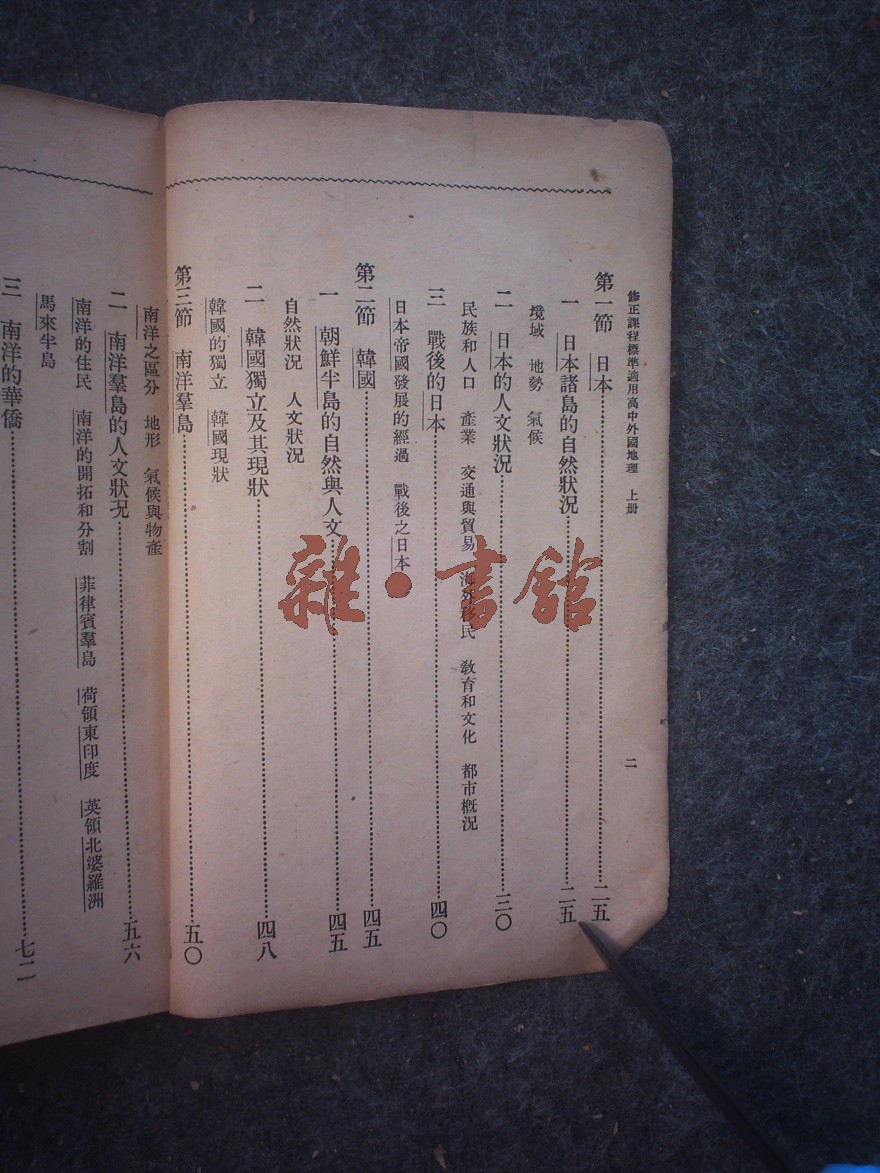 修正課程標準適用高中外國地理 上册
二
第一節 日本……二五
一 日本諸島的自然狀況……二五
境域 地勢 氣候
二 日本的人文狀況……三〇
民族和人口 產業 交通與貿易 海外移民 敎育和文化 都市槪況
三 戰後的日本……四〇
日本帝國發展的經過 戰後之日本
第二節 韓國……四五
一 朝鮮半島的自然與人文……四五
自然狀況 人文狀況
二 韓國獨立及其現狀……四八
韓國的獨立 韓國現狀
第三節 南洋羣島……五〇
南洋之區分 地形 氣候與物產
二 南洋羣島的人文狀况……五六
南洋的住民 南洋的開拓和分割 菲律賓羣島 荷領東印度 英領北婆羅洲
馬來半島
三 南洋的華僑……七二
雜·書館